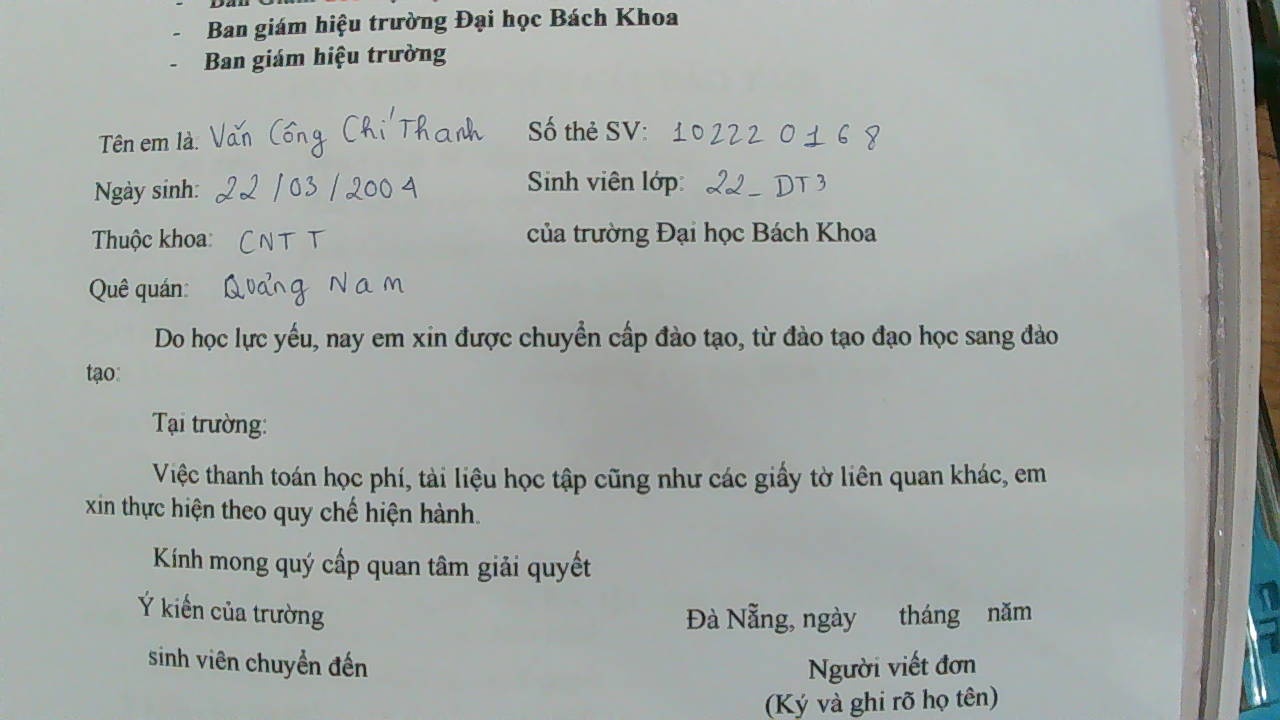 - Ban giám hiệu trường Đại học Bách Khoa
- Ban giám hiệu trường
Tên em là: Văn Công Chí Thanh Số thẻ SV: 102220168
Ngày sinh: 22/03/2004 Sinh viên lớp: 22_DT3
Thuộc khoa: CNTT của trường Đại học Bách Khoa
Quê quán: Quảng Nam
Do học lực yếu, nay em xin được chuyển cấp đào tạo, từ đào tạo đạo học sang đào
tạo:
Tại trường:
Việc thanh toán học phí, tài liệu học tập cũng như các giấy tờ liên quan khác, em
xin thực hiện theo quy chế hiện hành.
Kính mong quý cấp quan tâm giải quyết
Ý kiến của trường Đà Nẵng, ngày tháng năm
sinh viên chuyển đến Người viết đơn
(Ký và ghi rõ họ tên)